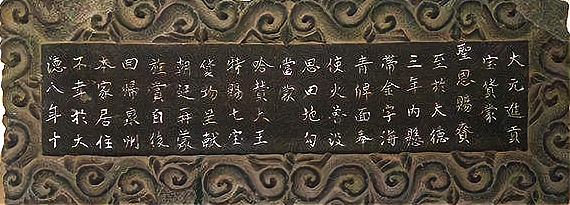 大元進貢
宝貨蒙
聖恩賜賚
至於大德
三年內懸
帶金字海
青牌面奉
使火魯没
思田地勾
當蒙
哈贊大王
特賜七宝
貨物呈獻
朝廷再蒙
旌賞自後
回歸泉州
本家居住
不幸於大
德八年十